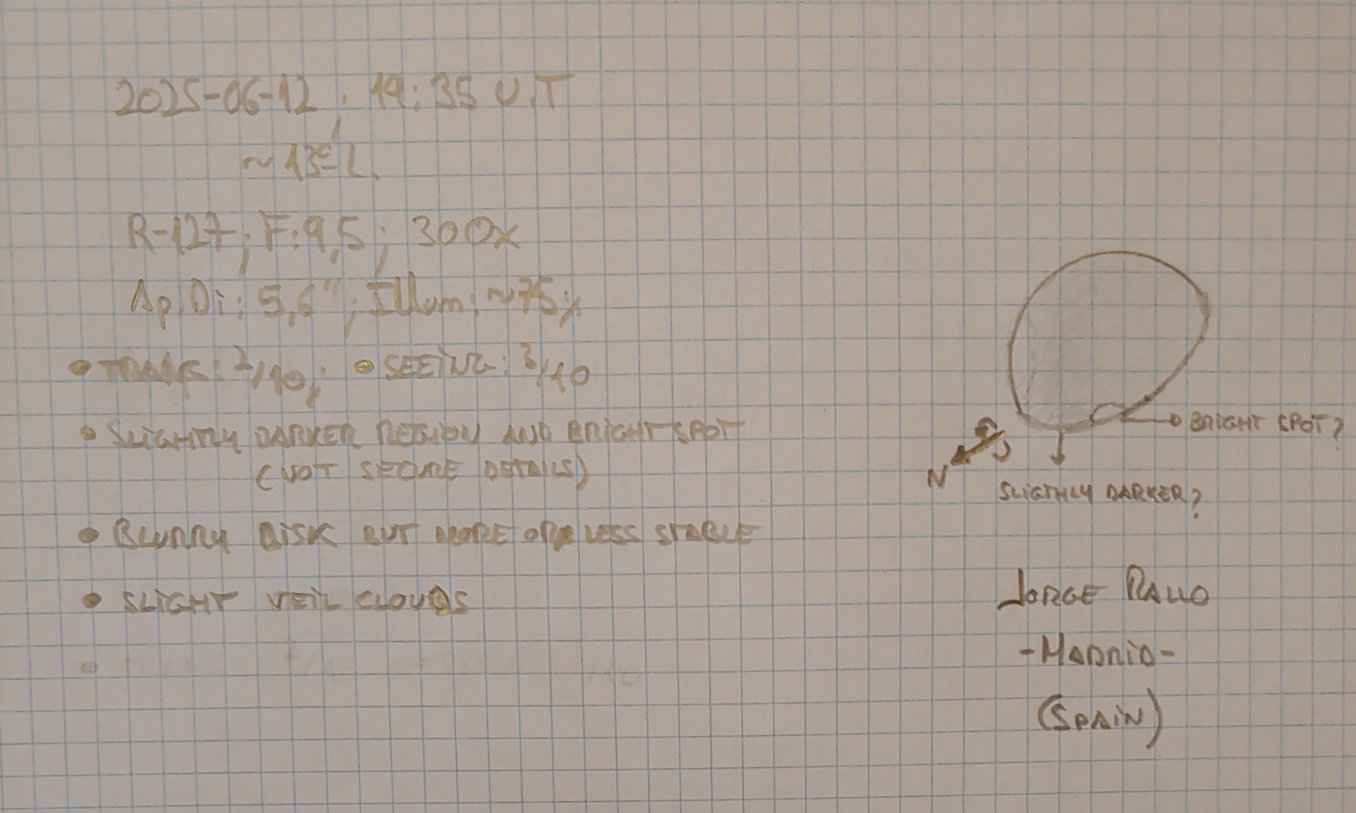 2025-06-12, 19:35 U.T
R-127; F:9,5; 300x
Ap. Di: 5,6"; Illum: ~75%
• TRANS: 2/10; • SEEING: 3/10
• SLIGHTLY DARKER REGION AND BRIGHT SPOT
(NOT SECURE DETAILS)
• BLURRY DISK BUT MORE OR LESS STABLE
• SLIGHT VEIL CLOUDS
BRIGHT SPOT?
N
SLIGTHLY DARKER?
JORGE RALLO
-MADRID-
(SPAIN)